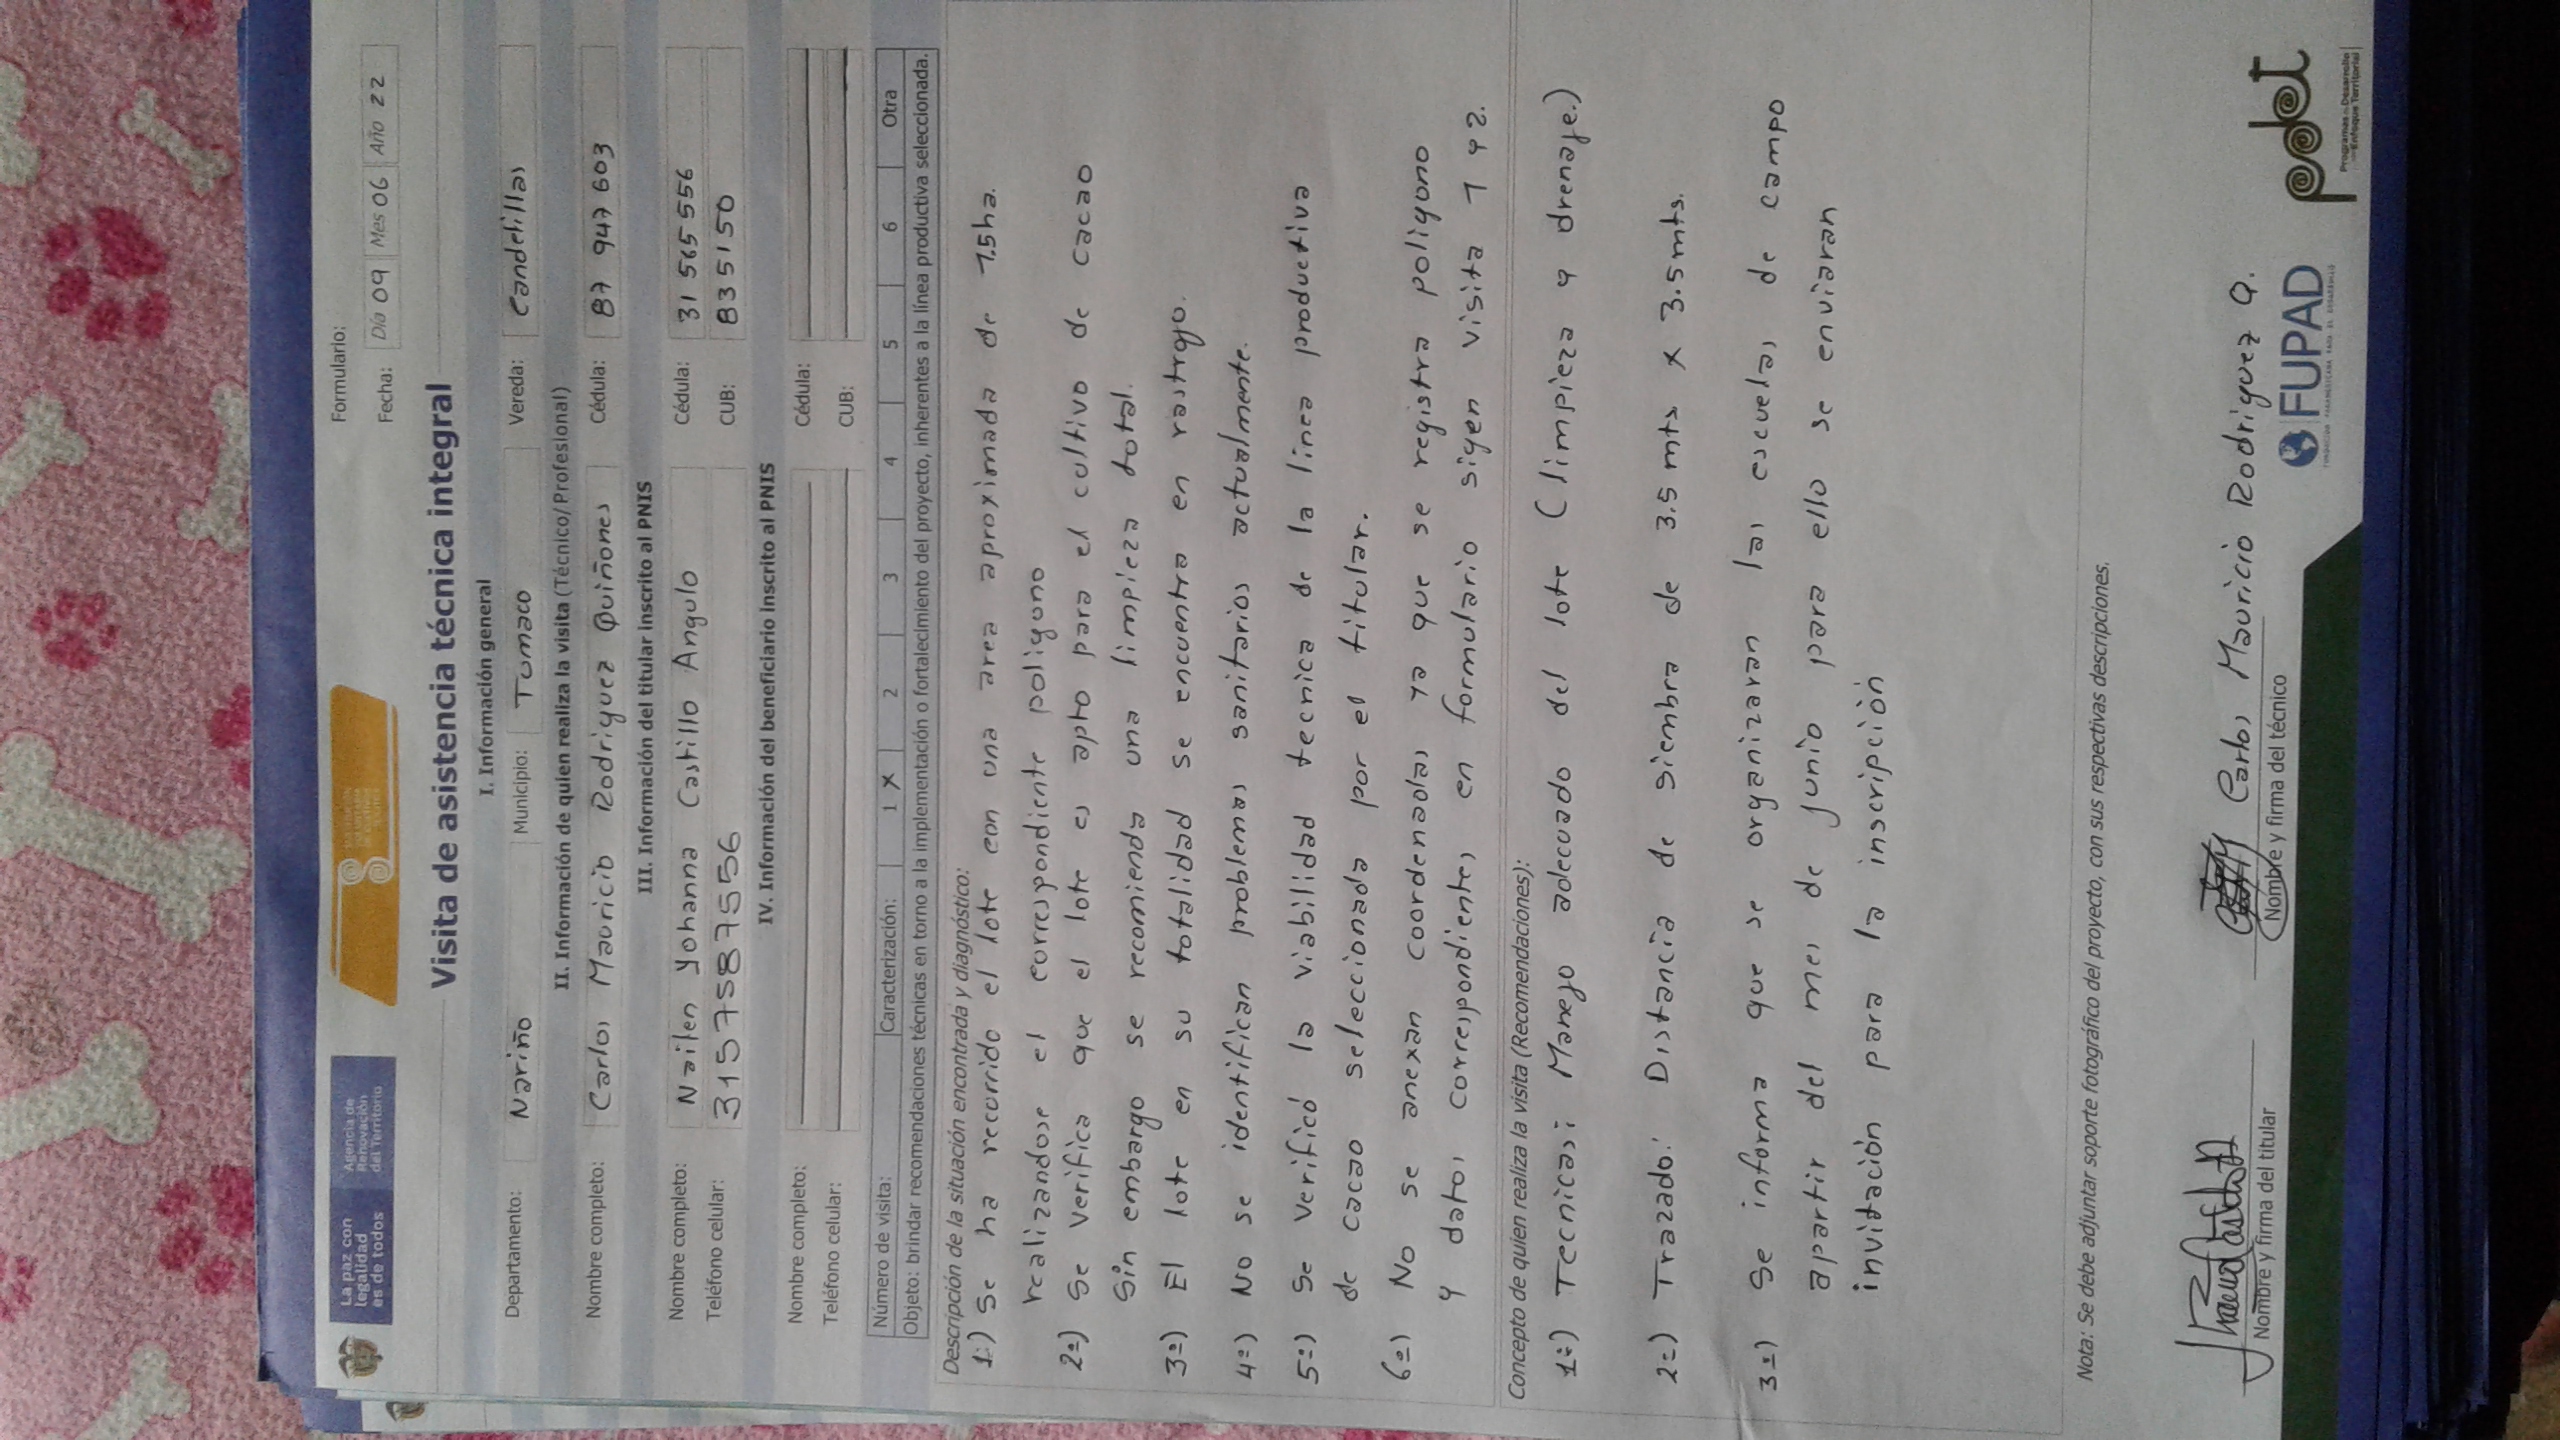 La paz con
legalidad
es de todos
Agencia de
Renovación
del Territorio
Formulario:
Fecha: Día 09 Mes 06 Año 22
Visita de asistencia técnica integral
I. Información general
Departamento: Nariño Municipio: Tumaco Vereda: Candelillas
II. Información de quien realiza la visita (Técnico/Profesional)
Nombre completo: Carlos Mauricio Rodriguez Quiñones Cédula: 87 947 603
III. Información del titular inscrito al PNIS
Nombre completo: Nailen Yohanna Castillo Angulo Cédula: 31 565 556
Teléfono celular: 3157587556 CUB: 835150
IV. Información del beneficiario inscrito al PNIS
Nombre completo: Cédula:
Teléfono celular: CUB:
Número de visita: Caracterización: 1 X 2 3 4 5 6 Otra
Objeto: brindar recomendaciones técnicas en torno a la implementación o fortalecimiento del proyecto, inherentes a la línea productiva seleccionada.
Descripción de la situación encontrada y diagnóstico:
1º) Se ha recorrido el lote con una area aproximada de 1.5ha.
realizandose el correspondiente poligono
2º) Se verifica que el lote es apto para el cultivo de cacao
Sin embargo se recomienda una limpieza total.
3º) El lote en su totalidad se encuentra en rastrojo.
4º) No se identifican problemas sanitarios actualmente.
5º) Se verificó la viabilidad tecnica de la linea productiva
de cacao seleccionada por el titular.
6º) No se anexan coordenadas ya que se registra poligono
y datos correspondientes en formulario sigen visita 1 y 2.
Concepto de quien realiza la visita (Recomendaciones):
1º) Tecnicas: Manejo adecuado del lote (limpieza y drenaje.)
2º) Trazado: Distancia de sienbra de 3.5 mts x 3.5 mts.
3º) Se informa que se organizaran las escuelas de campo
apartir del mes de junio para ello se enviaran
invitación para la inscripción
Nota: Se debe adjuntar soporte fotográfico del proyecto, con sus respectivas descripciones.
Nombre y firma del titular
Carlos Mauricio Rodriguez Q.
Nombre y firma del técnico
FUPAD
FUNDACIÓN PANAMERICANA PARA EL DESARROLLO
pdet
Programas de Desarrollo
con Enfoque Territorial